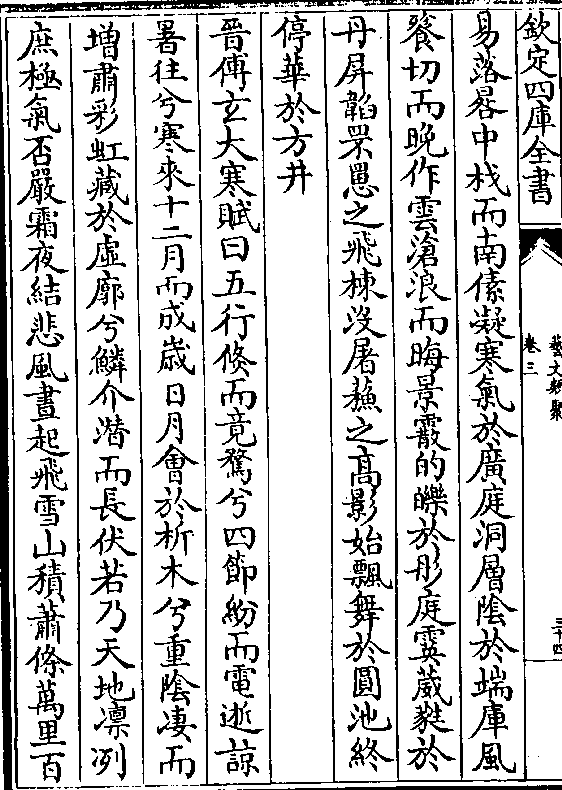 欽定四庫全書
藝文類聚
卷三
三十四
易落晷中栈而南傃凝寒氣於廣庭洞層陰於端庫風
餮切而晚作雲滄浪而晦景霰的皪於彤庭霙葳蕤於
丹屏韜罘罳之飛棟没屠蘇之髙影始飄舞於圓池終
停華於方井
晉傅玄大寒賦曰五行倐而竟騖兮四節紛而電逝諒
暑往兮寒來十二月而成歲日月會於析木兮重陰凄而
増肅彩虹藏於虛廓兮鱗介潛而長伏若乃天地凛冽
庶極氣否嚴霜夜結悲風晝起飛雪山積蕭條萬里百